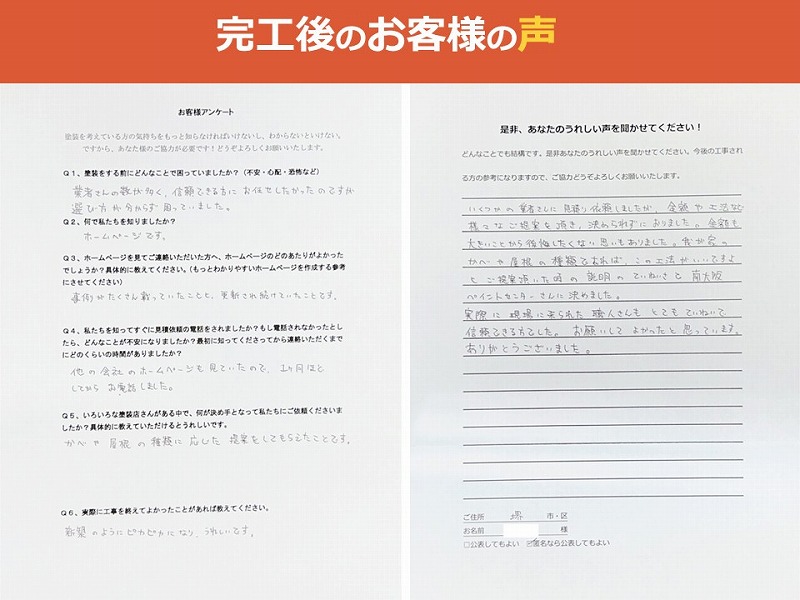 完工後のお客様の声
お客様アンケート
塗装を考えている方の気持ちをもっと知らなければいけないし、わからないといけない。
ですから、あなた様のご協力が必要です！どうぞよろしくお願いいたします。
Q1、塗装をする前にどんなことで困っていましたか？（不安・心配・恐怖など）
業者さんの数が多く、信頼できる方にお任せしたかったのですが
選び方が分からず困っていました。
Q2、何で私たちを知りましたか？
ホームページです。
Q3、ホームページを見てご連絡いただいた方へ、ホームページのどのあたりがよかった
でしょうか？具体的に教えてください。（もっとわかりやすいホームページを作成する参考
にさせてください）
事例がたくさん載っていたことと、更新され続けていたことです。
Q4、私たちを知ってすぐに見積依頼の電話をされましたか？もし電話されなかったとし
たら、どんなことが不安になりましたか？最初に知ってくださってから連絡いただくまで
にどのくらいの時間がありましたか？
他の会社のホームページも見ていたので、1ヶ月ほど
してからお電話しました。
Q5、いろいろな塗装店さんがある中で、何が決め手となって私たちにご依頼くださいま
したか？具体的に教えていただけるとうれしいです。
かべや屋根の種類に応じた提案をしてもらえたことです。
Q6、実際に工事を終えてよかったことがあれば教えてください。
新築のようにピカピカになり、うれしいです。
是非、あなたのうれしい声を聞かせてください！
どんなことでも結構です。是非あなたのうれしい声を聞かせてください。今後の工事され
る方の参考になりますので、ご協力どうぞよろしくお願いいたします。
いくつかの業者さんに見積り依頼しましたが、金額や工法など
様々なご提案を頂き、決められずにおりました。金額も
大きいことから後悔したくない思いもありました。我が家の
かべや屋根の種類であれば、この工法がいいですよ
とご提案頂いた時の説明のていねいさと南大阪
ペイントセンターさんに決めました。
実際に現場に来られた職人さんもとてもていねいで
信頼できる方でした。お願いしてよかったと思っています。
ありがとうございました。
ご住所 堺 市・区
お名前 様
□公表してもよい ☑匿名なら公表してもよい